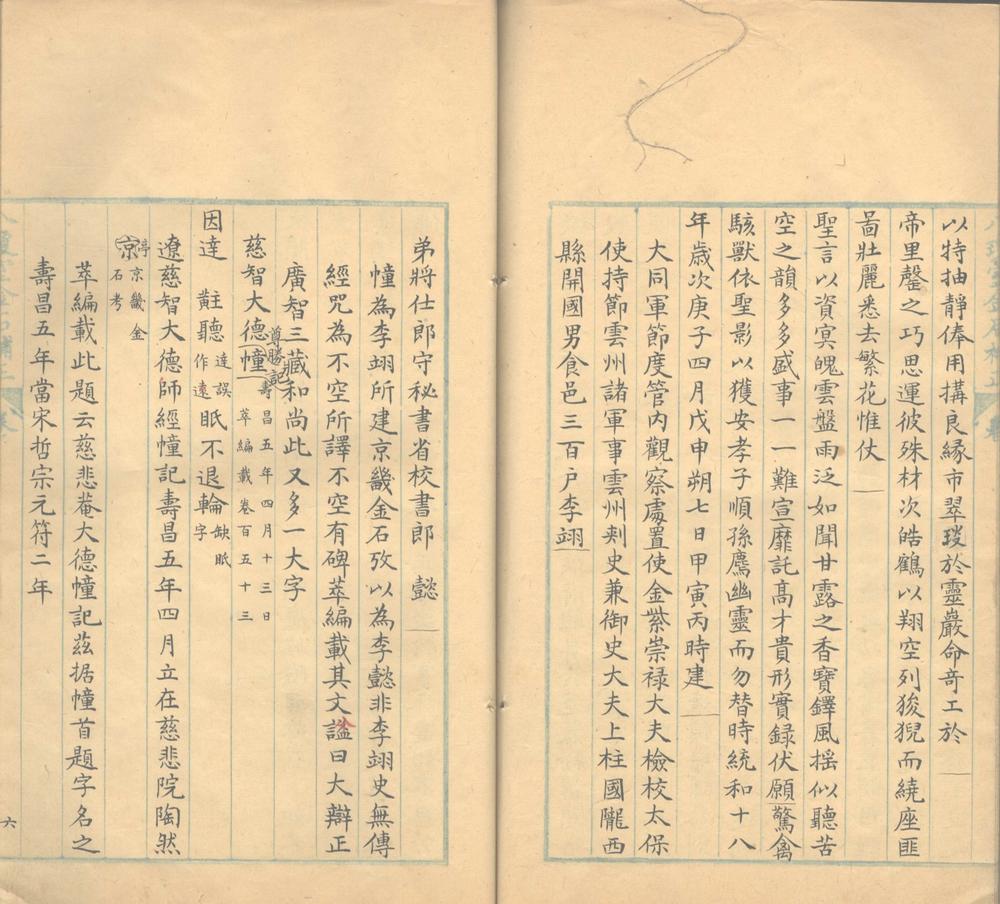 以特抽靜俸用搆良緣市翠琰於靈巖命奇工於
帝里罄之巧思運彼殊材次皓鶴以翔空列狻猊而繞座匪
啚壯麗悉去繁花惟仗
聖言以資冥魄雲盤雨泛如聞甘露之香寶鐸風摇似聽苦
空之韻多多盛事一一難宣靡託髙才貴形實録伏願驚禽
駭獸依聖影以獲安孝子順孫鷹幽靈而勿替時統和十八
年歲次庚子四月戊申朔七日甲寅丙時建
大同軍節度管内觀察處置使金紫崇禄大夫檢校太保
使持節雲州諸軍事雲州刾史兼御史大夫上柱國隴西
縣開國男食邑三百户李翊
弟將仕郎守秘書省校書郎 懿
幢為李翊所建京畿金石攷以為李懿非李翊史無傳
經咒為不空所譯不空有碑萃編載其文諡曰大辯正
廣智三藏和尚此又多一大字
慈智大德幢
尊勝記
壽昌五年四月十三日
萃編載卷百五十三
因達 䵷聽
達誤
作遠
眠不退輪
缺眠
字
遼慈智大德師經幢記壽昌五年四月立在慈悲院陶然
亭
京
京畿金
石考
萃編載此題云慈悲菴大德幢記茲据幢首題字名之
壽昌五年當宋哲宗元符二年
六